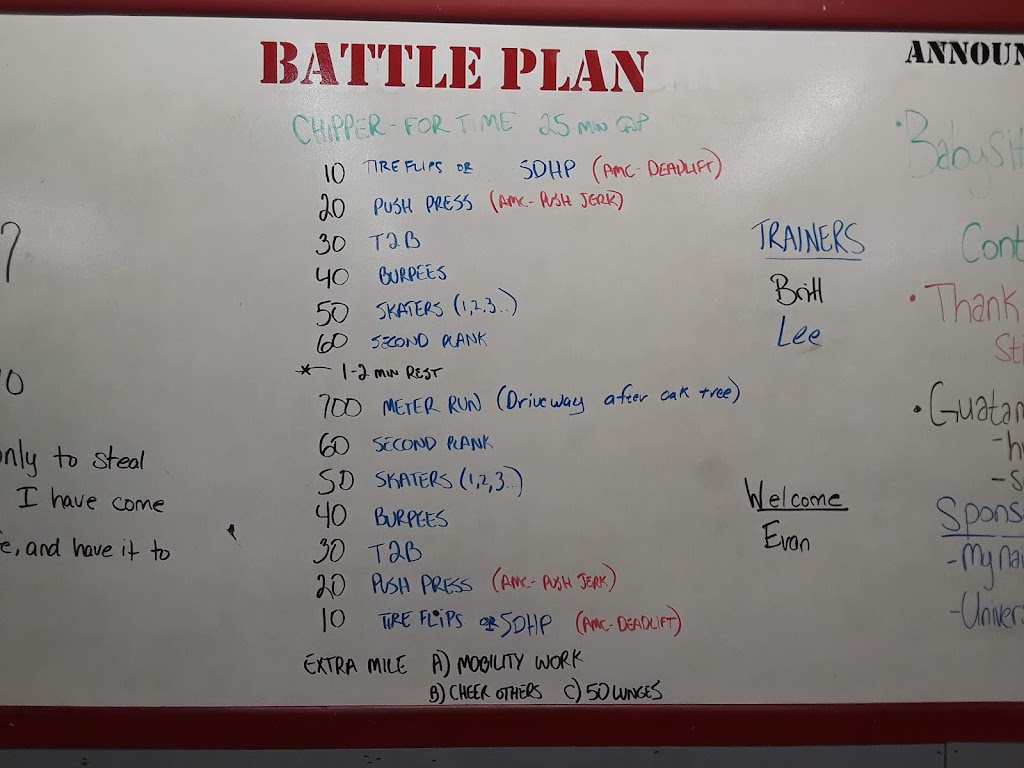 BATTLE PLAN
CHIPPER - FOR TIME 25 MIN CAP
10 TIRE FLIPS OR SDHP (AMC- DEADLIFT)
20 PUSH PRESS (AMC- PUSH JERK)
30 T2B
40 BURPEES
50 SKATERS (1,2,3..)
60 SECOND PLANK
* 1-2 MIN REST
700 METER RUN (Driveway after oak tree)
60 SECOND PLANK
50 SKATERS (1,2,3..)
40 BURPEES
30 T2B
20 PUSH PRESS (AMC- PUSH JERK)
10 TIRE FLIPS OR SDHP (AMC-DEADLIFT)
EXTRA MILE A) MOBILITY WORK
B) CHEER OTHERS C) 50 LUNGES
?
only to steal
I have come
, and have it to
TRAINERS
Britt
Lee
Welcome
Evan
ANNOUN
• Babysit
Cont
• Thank
St
• Guatam
Spons
- My
- Univers